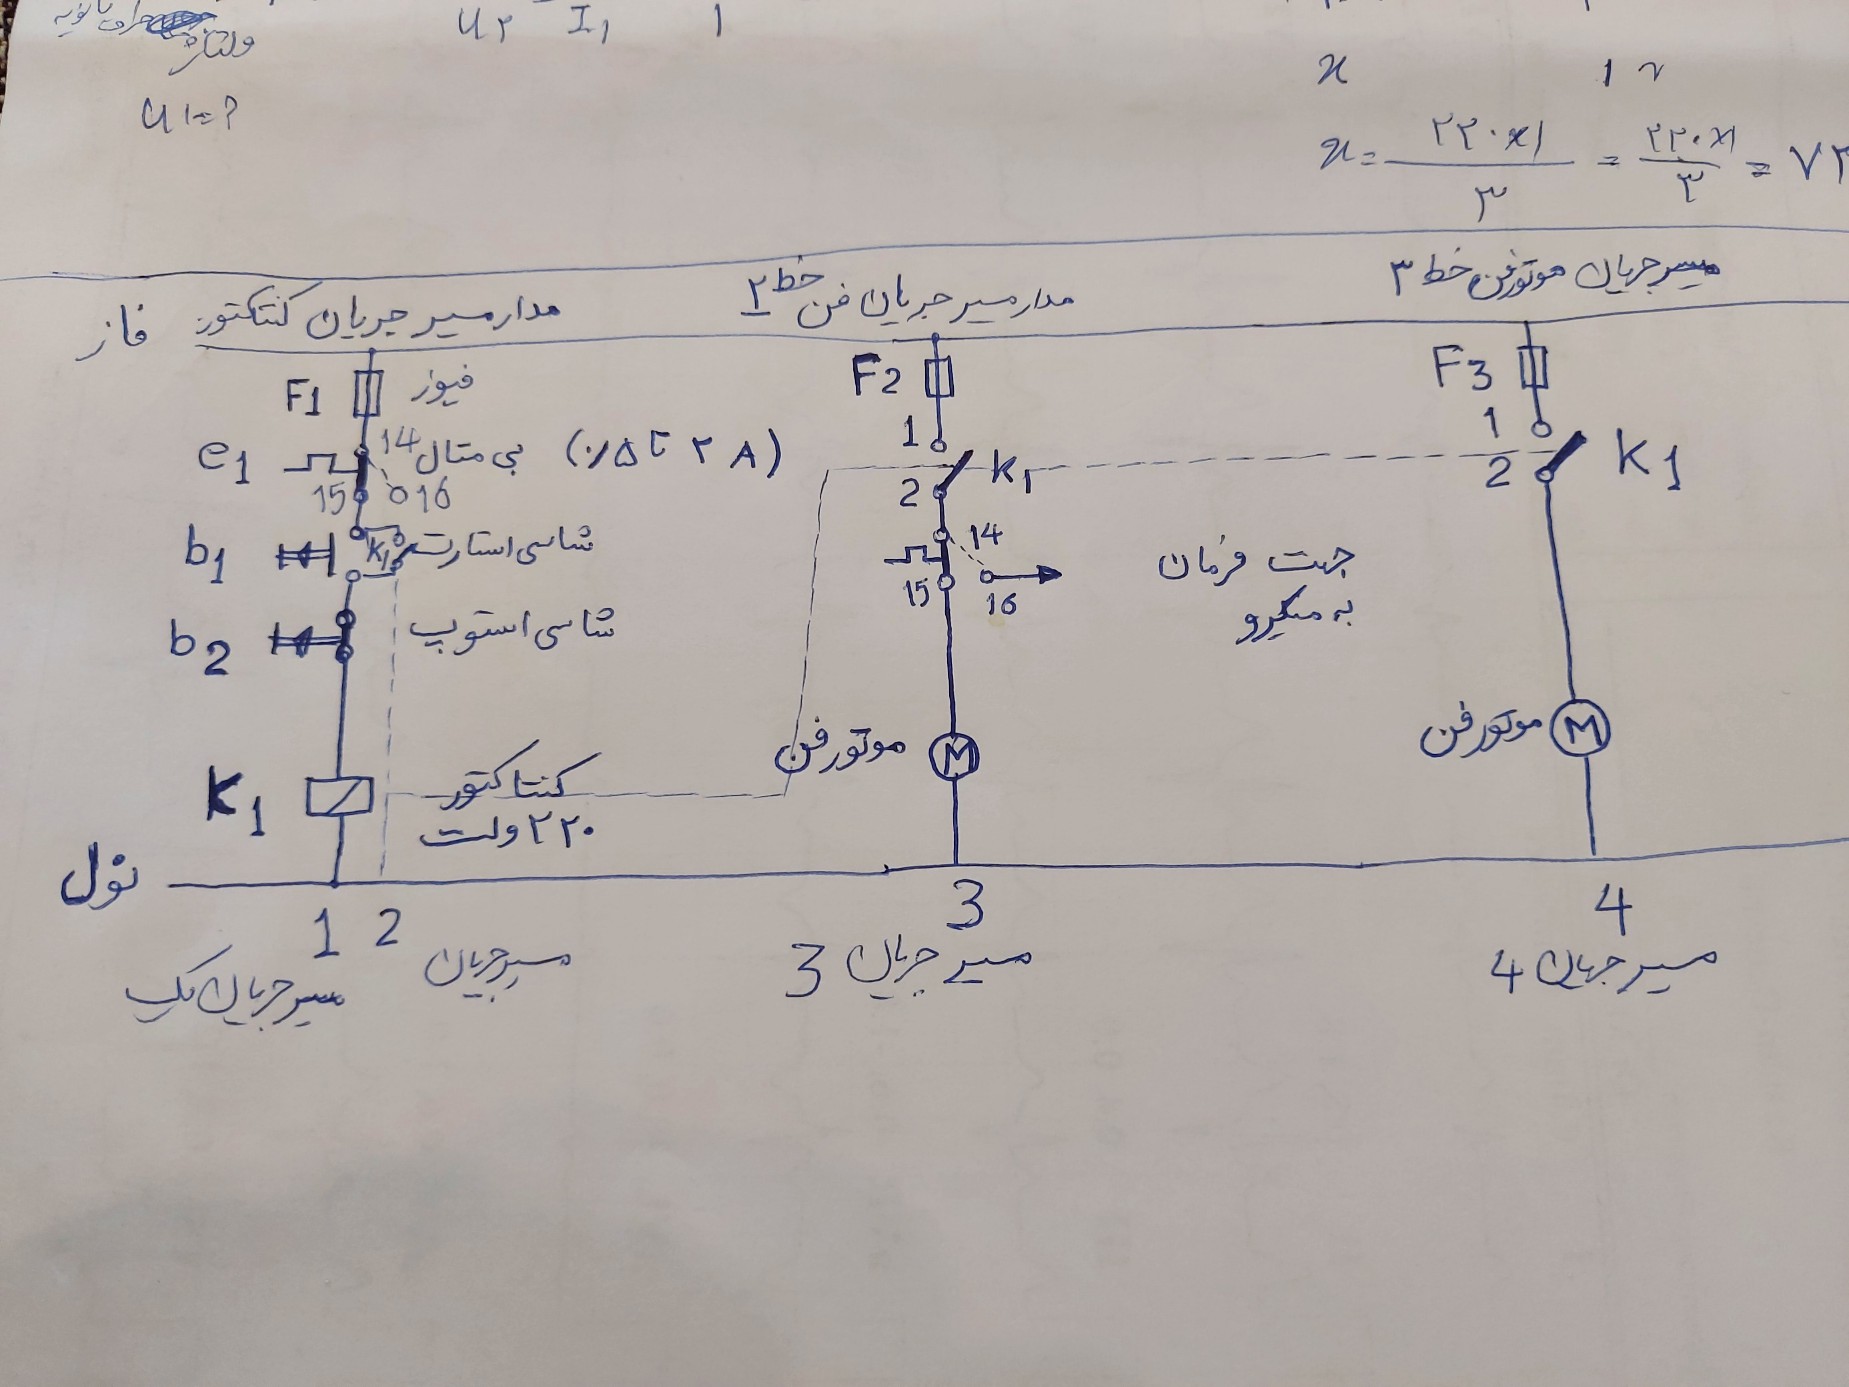 ولتاژ
U۲ I۱ ۱
x ۱۲
U۱=?
x= ۲۲۰x۱ / ۳ = ۲۲۰x۱ / ۳ = ۷۳
مدار مسیر جریان کنتاکتور
مدار مسیر جریان فن خط ۲
مسیر جریان موتور فن خط ۳
فاز
F1 فیوز
F2
F3
e1 14 بی متال (۱/۵ تا ۲ A)
15 16
1 K1 2
1 K1 2
b1 K1 شاسی استارت
14
15 16
جهت فرمان
به میکرو
b2 شاسی استوپ
موتور فن M
موتور فن M
K1 کنتاکتور
۲۲۰ ولت
نول
1 2 3 4
مسیر جریان یک
مسیر جریان
مسیر جریان 3
مسیر جریان 4